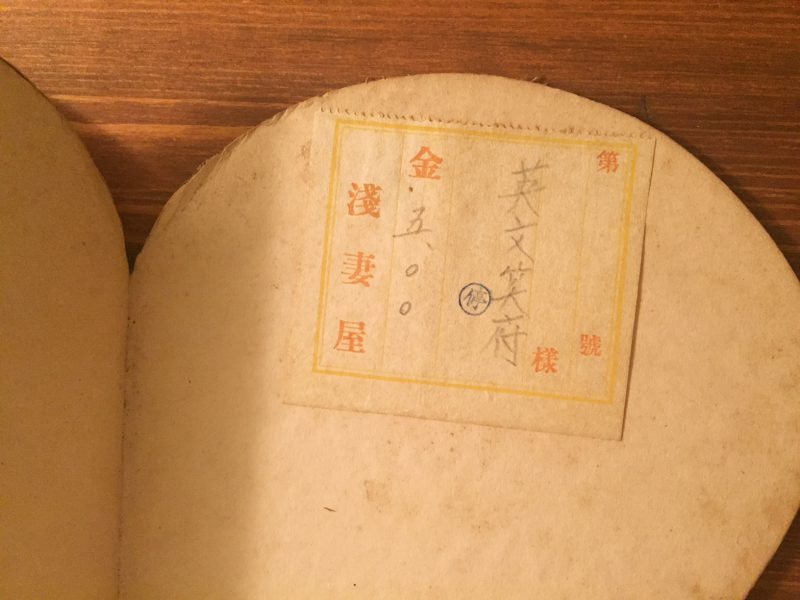 第 號
英文笑府 様
停
金 五、〇〇
淺妻屋